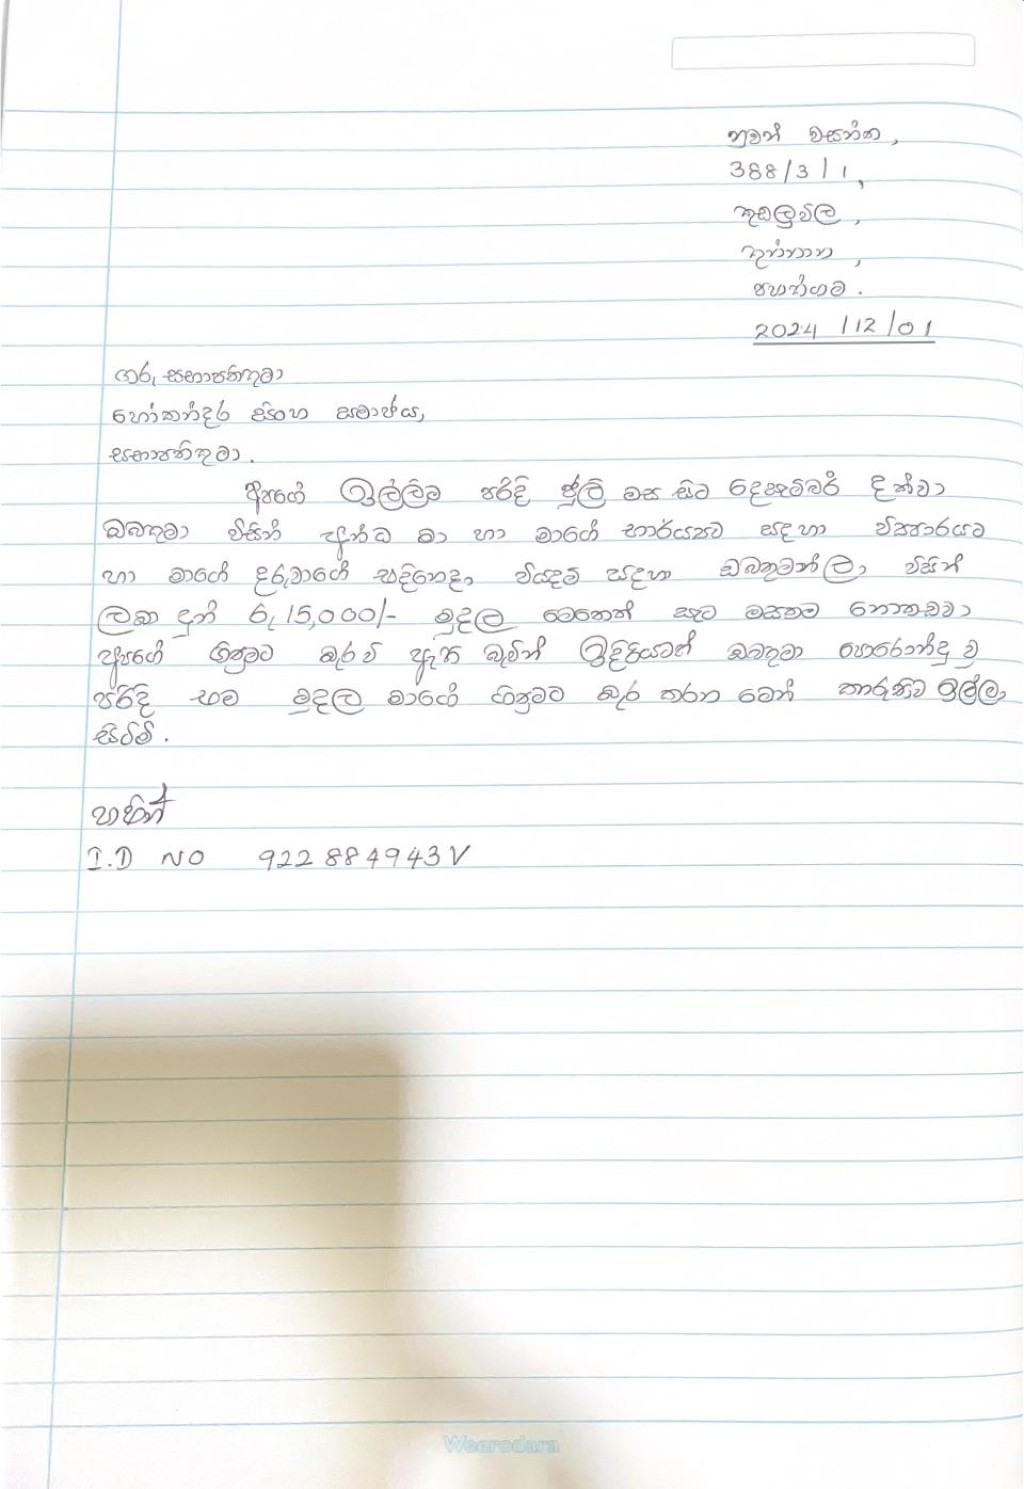 නුවන් වසන්ත,
388/3/1,
කුඩලුවිල,
දුන්නාන,
පහත්ගම.
2024/12/01
ගරු සභාපතිතුමා
හෝකන්දර සිංහ සමාජය,
සභාපතිතුමා.
අපගේ ඉල්ලීම පරිදි ජූලි මස සිට දෙසැම්බර් දක්වා
ඔබතුමා විසින් අන්ධ මා හා මාගේ භාර්යාව සඳහා
හා මාගේ දරුවාගේ එදිනෙදා වියදම් සඳහා ඔබතුමන්ලා විසින්
ලබා දුන් රු. 15,000/- මුදල මෙතෙක් සෑම මසකම නොකඩවා
අපගේ ගිණුමට බැර වී ඇති බැවින් ඉදිරියටත් ඔබතුමා පොරොන්දු වූ
පරිදි එම මුදල මාගේ ගිණුමට බැර කරන මෙන් කාරුණිව ඉල්ලා
සිටිමි.
I.D NO 922884943V
Weerodara